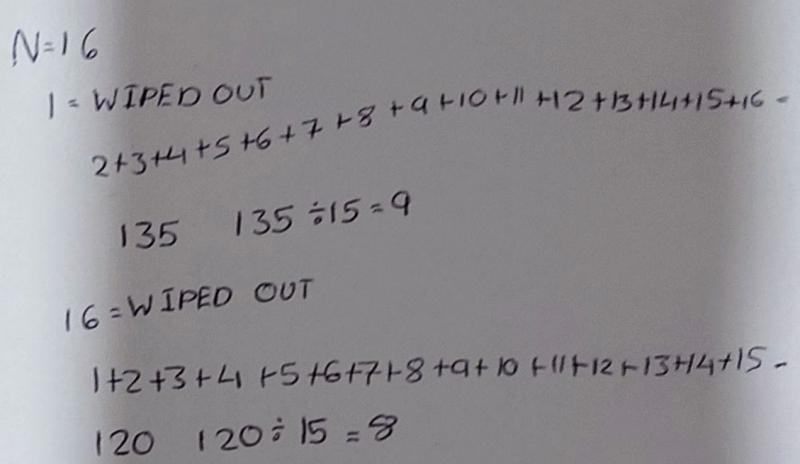 N=16
1 = WIPED OUT
2+3+4+5+6+7+8+9+10+11+12+13+14+15+16 -
135 135 ÷ 15 = 9
16 = WIPED OUT
1+2+3+4+5+6+7+8+9+10+11+12+13+14+15 -
120 120 ÷ 15 = 8